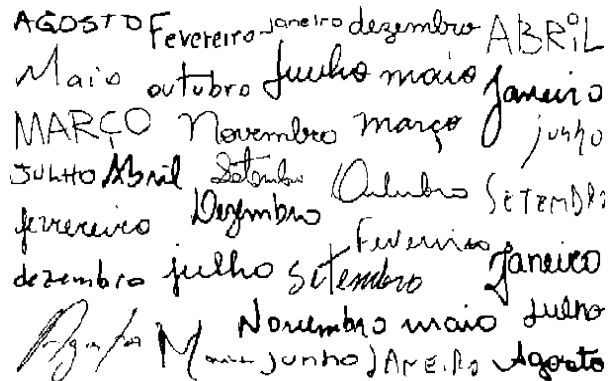 AGOSTO Fevereiro janeiro dezembro ABRIL
Maio outubro Junho maio Janeiro
MARÇO Novembro março junho
JULHO Abril Setembro Outubro SETEMBRO
fevereiro Dezembro Fevereiro
dezembro julho setembro Janeiro
Agosto Maio Novembro maio Julho
junho JANEIRO Agosto